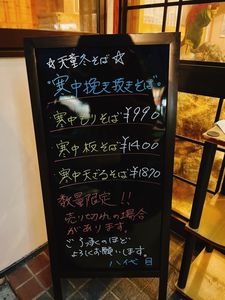 ☆天童冬そば☆
寒中挽き抜きそば。
寒中もりそば ¥990
寒中板そば ¥1400
寒中天ざるそば ¥1870
数量限定!!
売り切れの場合
があります。
ご了承のほど
よろしくお願いします。
八代目